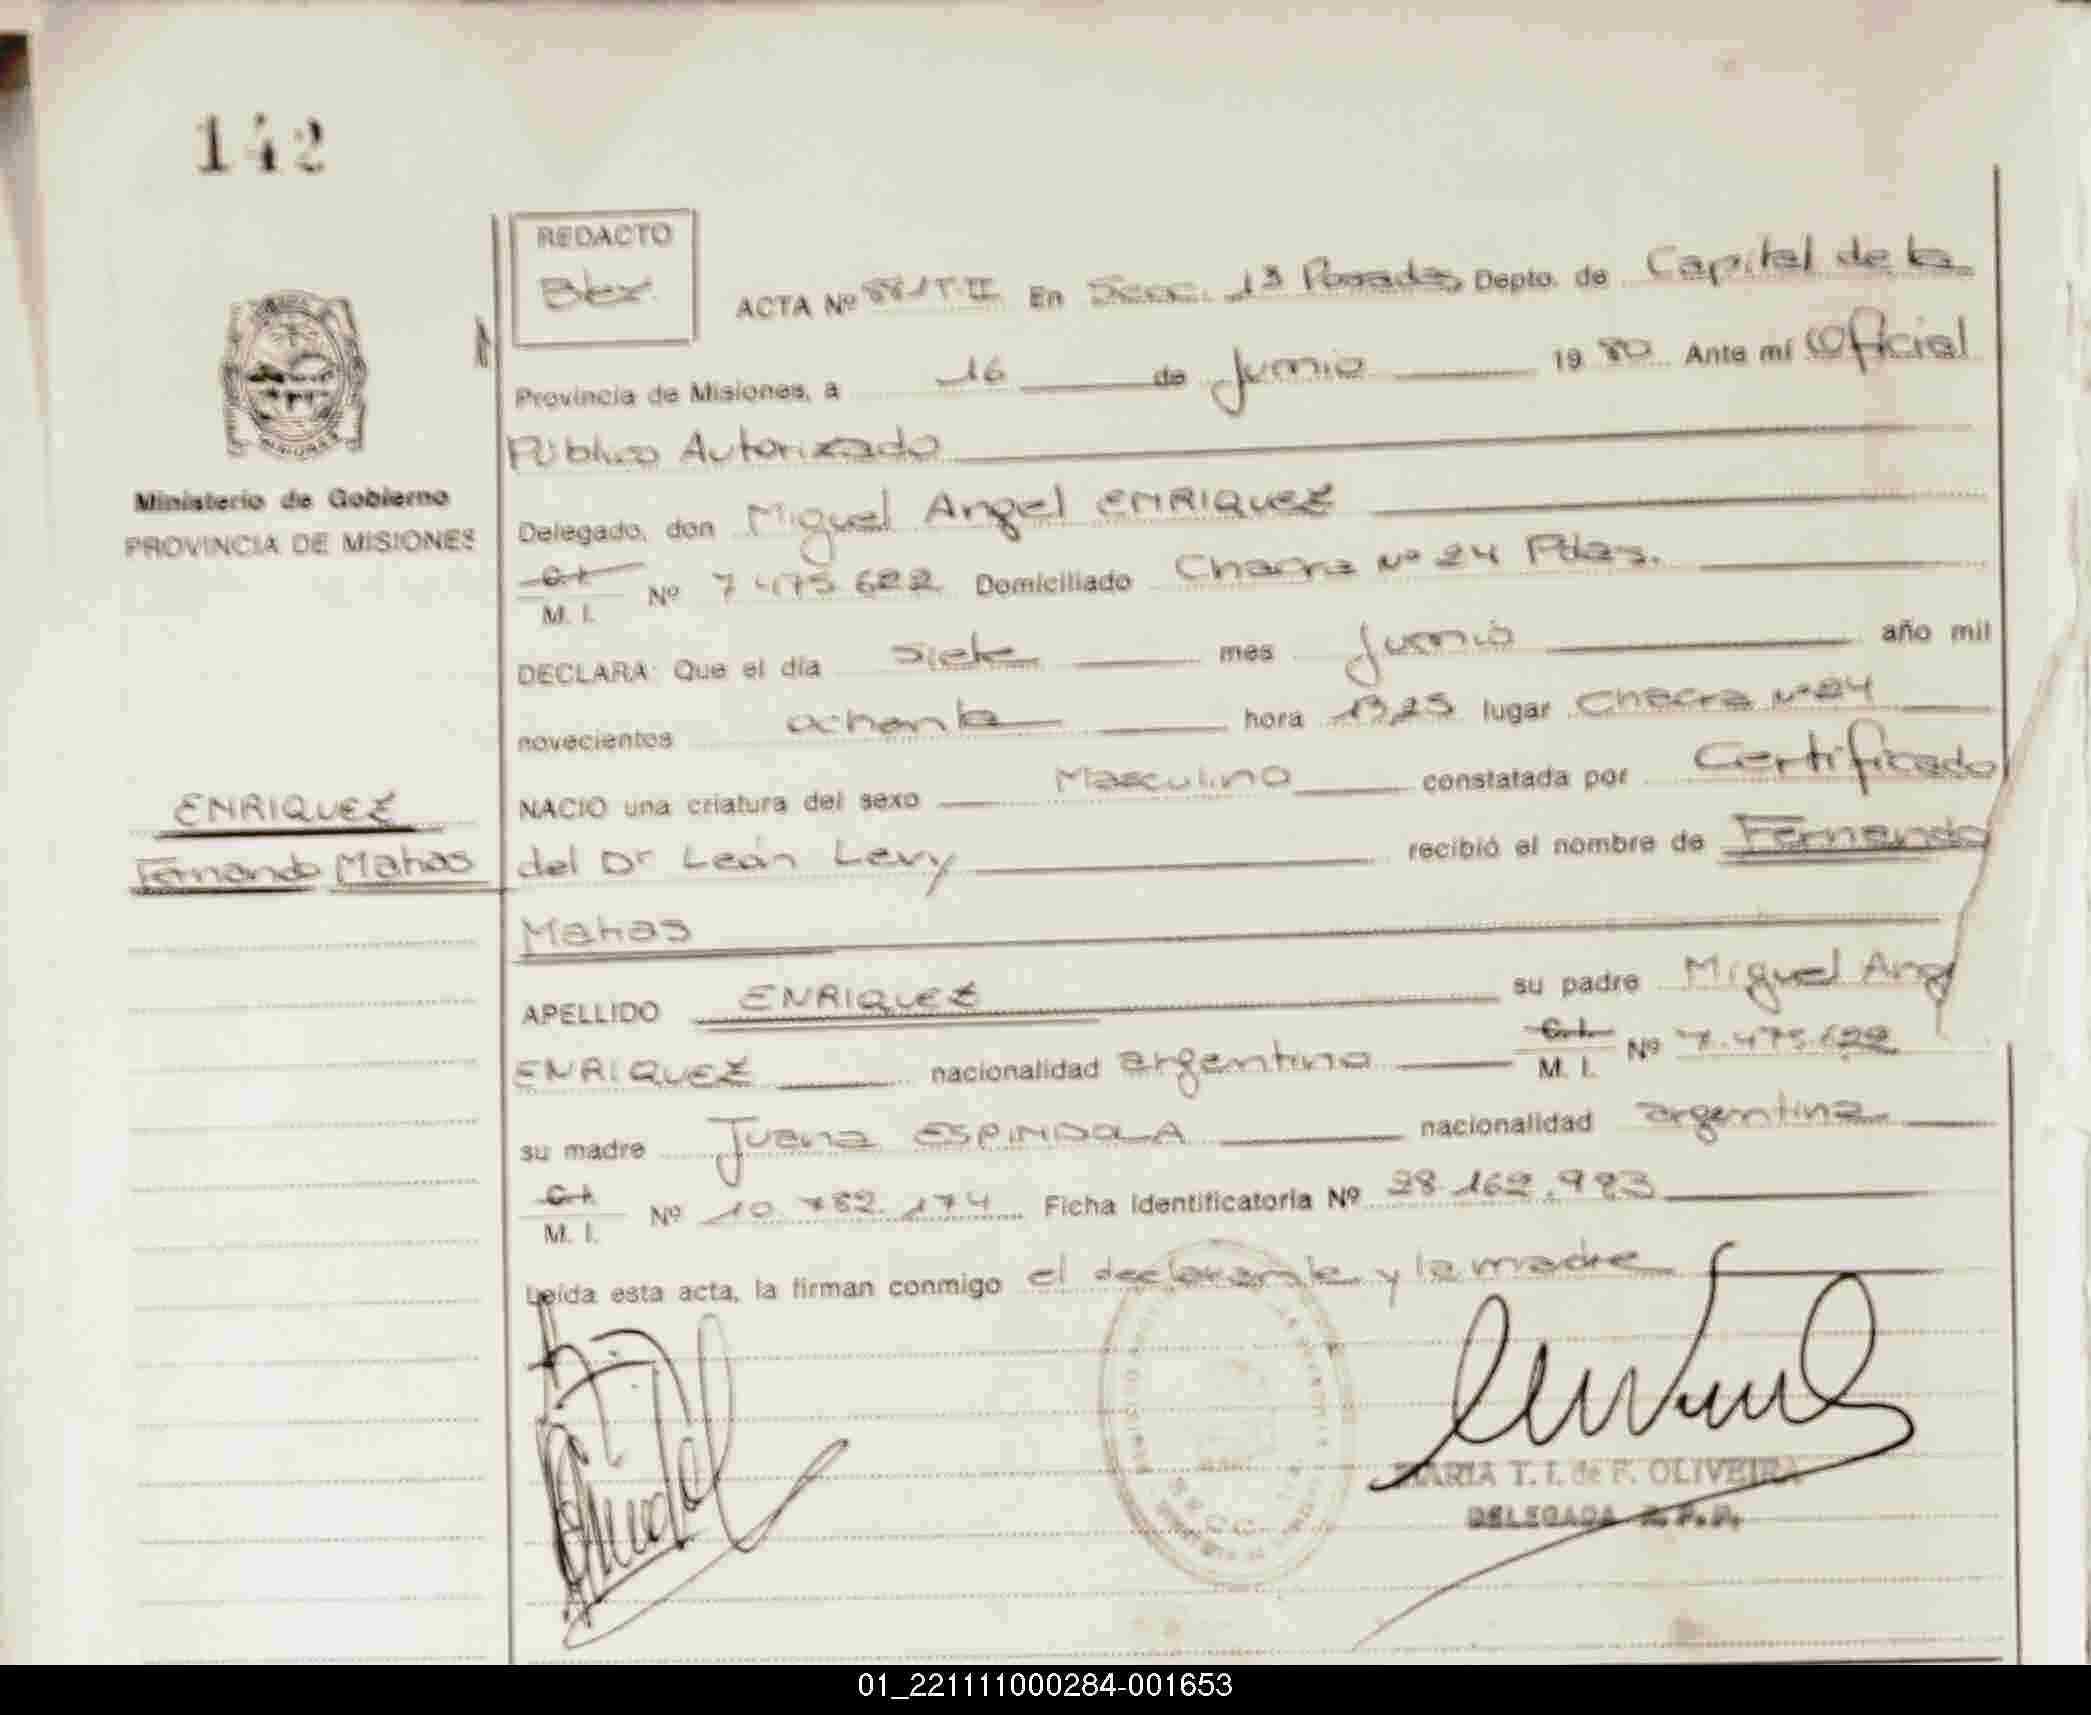 142
REDACTO
ACTA Nº 881 T. II En Secc. 13 Posadas Depto. de Capital de la
Provincia de Misiones, a 16 de Junio 19 80 Ante mí Oficial
Público Autorizado
Ministerio de Gobierno
PROVINCIA DE MISIONES
Delegado, don Miguel Angel ENRIQUEZ
C. I.
M. I. Nº 7 475 622 Domiciliado Chacra Nº 24 Pdas.
DECLARA: Que el día siete mes Junio año mil
novecientos ochenta hora 13,25 lugar Chacra Nº 24
NACIO una criatura del sexo Masculino constatada por Certificado
ENRIQUEZ
Fernando Matias
del Dr León Levy recibió el nombre de Fernando
Matias
APELLIDO ENRIQUEZ su padre Miguel Ang
ENRIQUEZ nacionalidad argentina C. I.
M. I. Nº 7.475.622
su madre Juana ESPINDOLA nacionalidad argentina
C. I.
M. I. Nº 10 782.174 Ficha Identificatoria Nº 28.162.923
Leída esta acta, la firman conmigo el declarante y la madre
MARIA T. I. de F. OLIVEIRA
DELEGADA R. P. P.
01_221111000284-001653